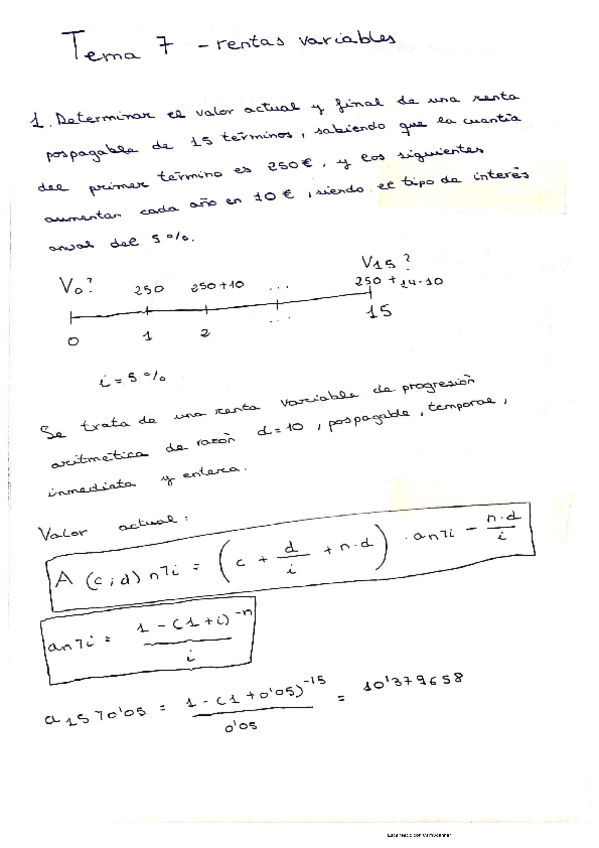 Tema 7 - rentas variables
1. Determinar el valor actual y final de una renta
pospagable de 15 términos, sabiendo que la cuantía
del primer término es 250€, y los siguientes
aumentan cada año en 10€, siendo el tipo de interés
anual del 5%.
V0? 250 250+10 ... V15? 250+14·10
0 1 2 ... 15
i = 5%
Se trata de una renta variable de progresión
aritmética de razón d=10, pospagable, temporal,
inmediata y entera.
Valor actual:
A (c;d) n˥i = (c + d/i + n·d) · an˥i - n·d/i
an˥i = 1-(1+i)^-n / i
a15˥0'05 = 1-(1+0'05)^-15 / 0'05 = 10'379658